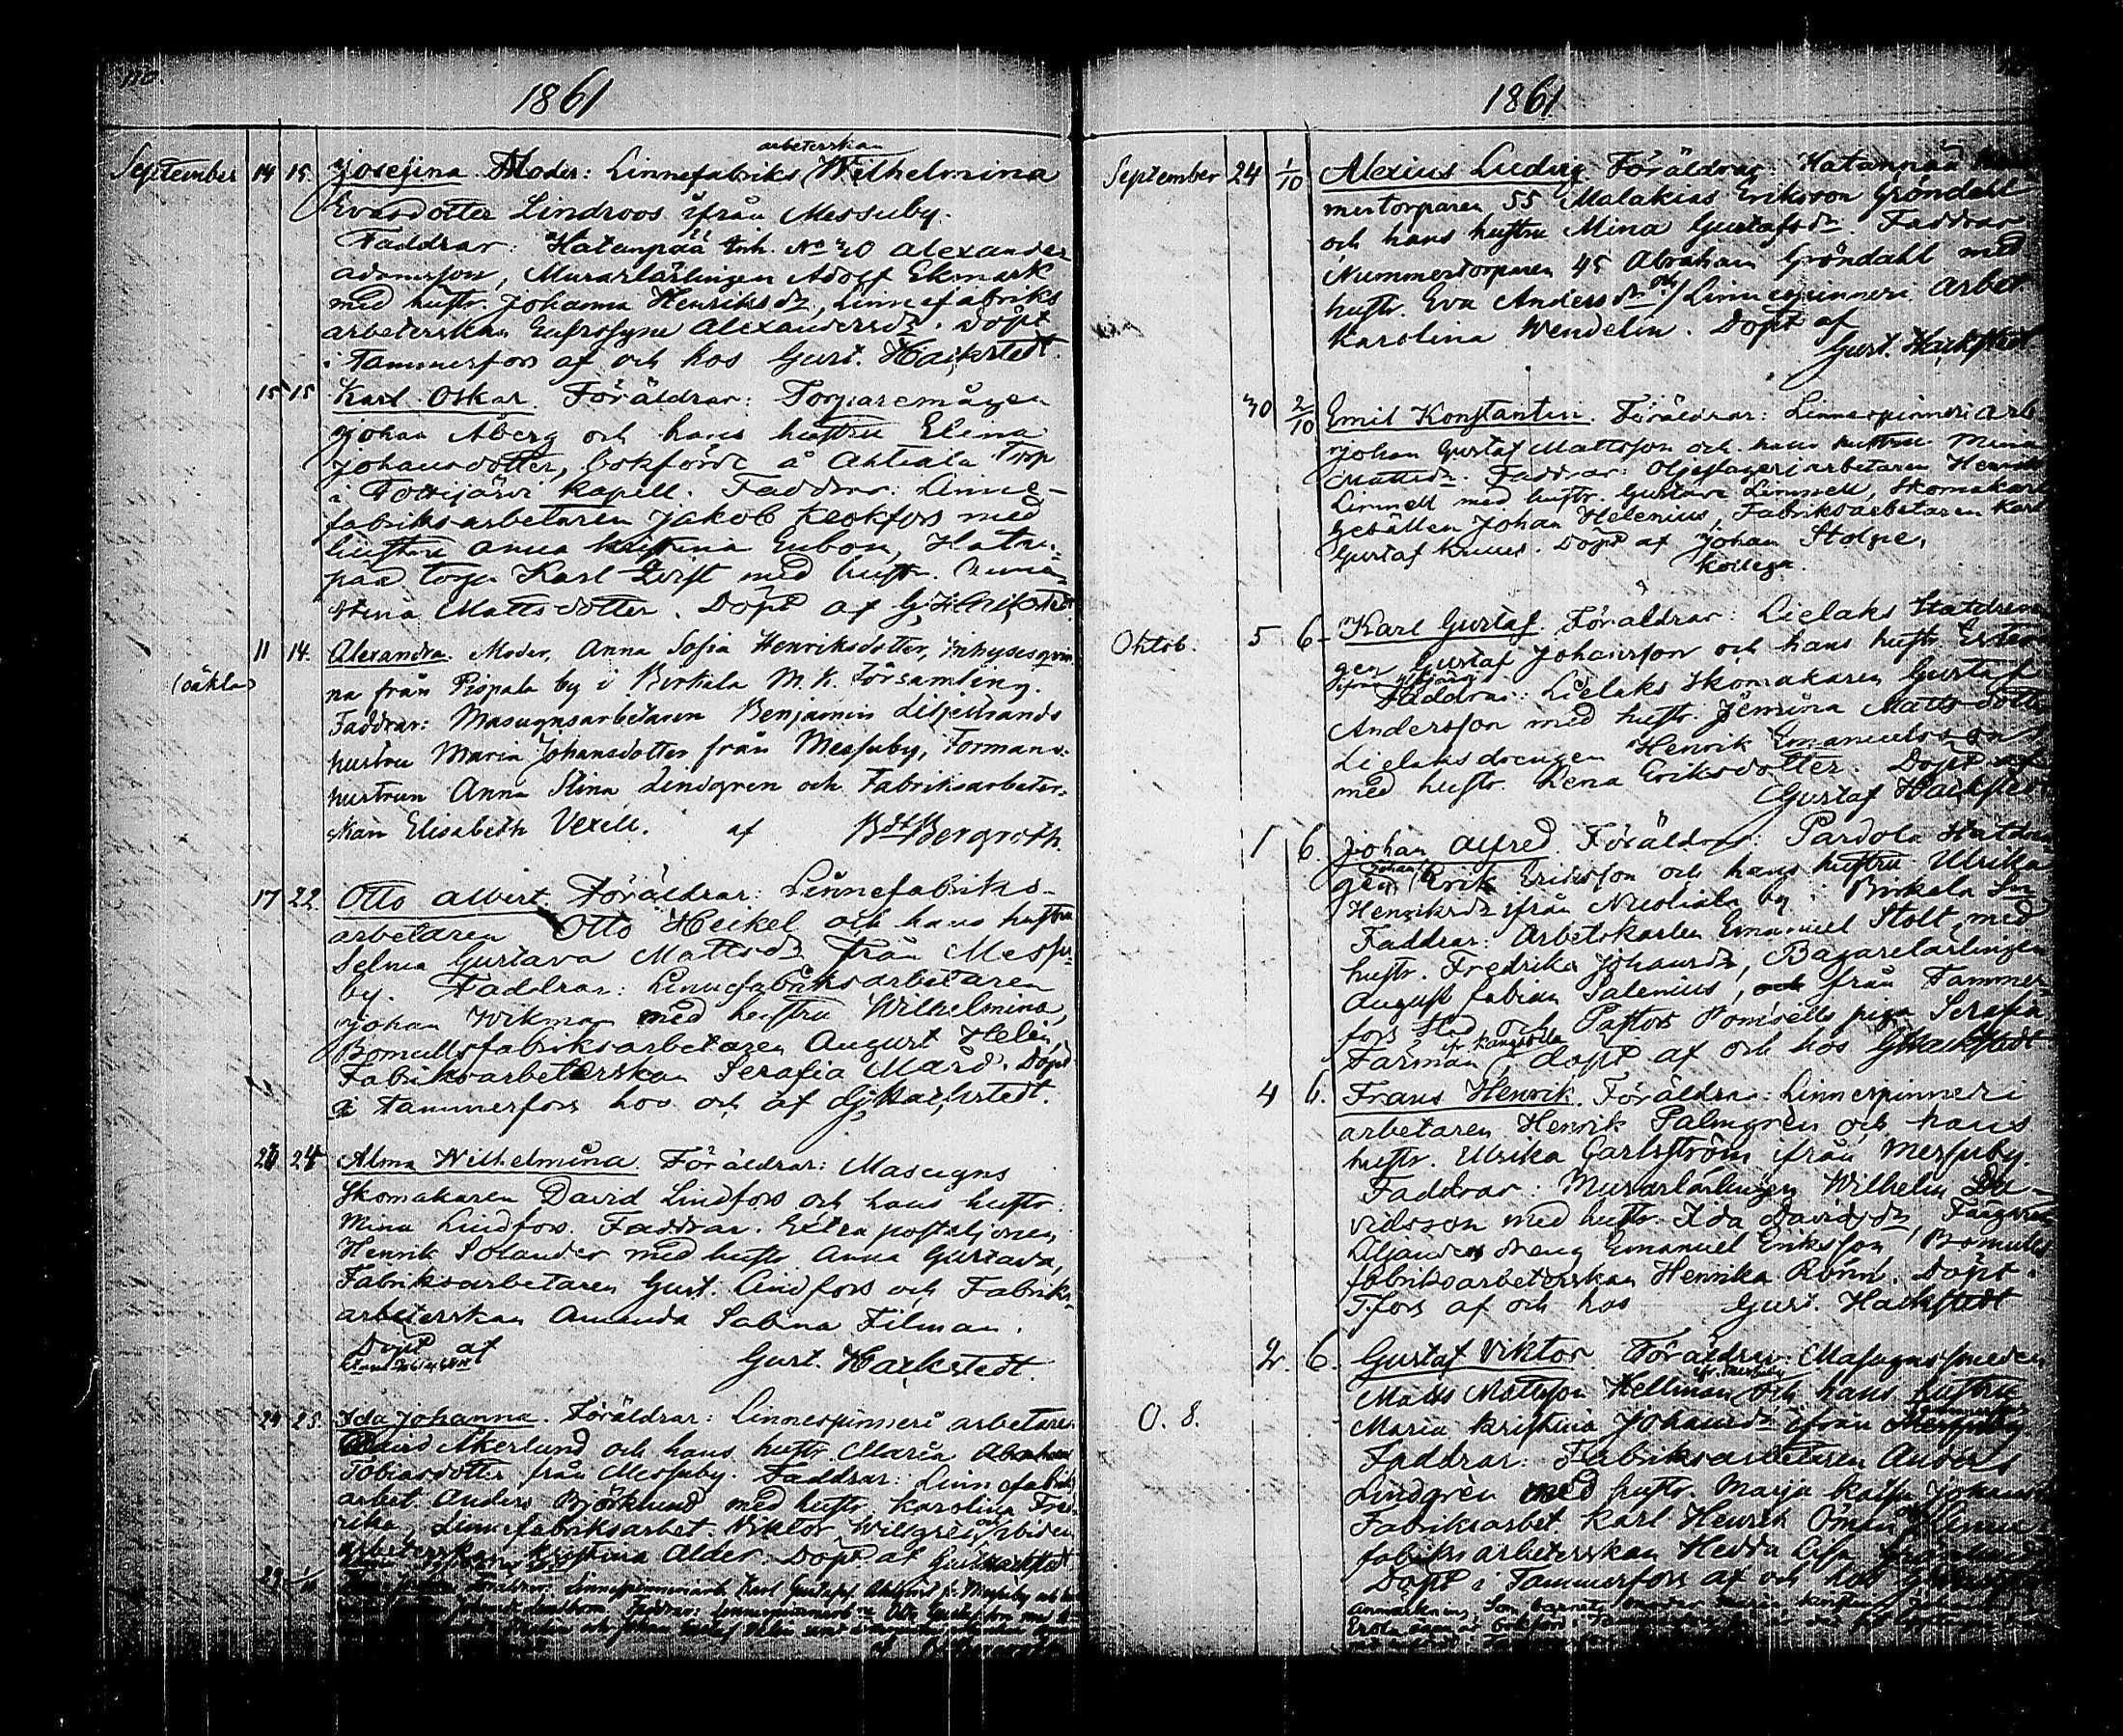 110.
1861
September 14 15. Josefina. Moder: Linnefabriks arbeterskan Wilhelmina
Evasdotter Lindroos ifrån Messuby.
Faddrar: Hatanpää inh. No 30 Alexander
Adamsson, Murarlärlingen Adolf Ekmark
med hustr. Johanna Henriksdr, Linnefabriks
arbeterskan Eufrosyne Alexandersdr. Döpt
i Tammerfors af och hos Gust. Hackstedt.
15 15 Karl Oskar. Föräldrar: Torparemågen
Johan Åberg och hans hustru Elina
Johansdotter, bokförde å Ahtiala Torp
i Tottijärvi kapell. Faddrar: Linne-
fabriksarbetaren Jakob Keokfors med
hustru Anna Kristina Enbon, Hatan-
pää torp. Karl Qvist med hustr.
Stina Mattsdotter. Döpt af G. Hackstedt
(oäkta) 11 14. Alexandra. Moder, Anna Sofia Henriksdotter, Inhysesqvin
na från Pispala by i Birkala M. K. Församling.
Faddrar: Masugnsarbetaren Benjamin Liljestrands
hustru Maria Johansdotter från Messuby, Formans-
hustrun Anna Stina Lindgren och Fabriksarbeter-
skan Elisabeth Vexell. af Bergroth.
17 22 Otto Albert. Föräldrar: Linnefabriks-
arbetaren Otto Heikel och hans hustru
Selma Gustava Mattsdr från Messu-
by. Faddrar: Linnefabriksarbetaren
Johan Wikman med hustru Wilhelmina,
Bomullsfabriksarbetaren August Helén,
Fabriksarbeterskan Serafia Mård. Döpt
i Tammerfors hos och af G. Hackstedt.
23 24 Alma Wilhelmina. Föräldrar: Masugns
Skomakaren David Lindfors och hans hustr.
Mina Lindfors. Faddrar. Extra postiljonen
Henrik Solander med hustr. Anna Gustava,
Fabriksarbetaren Gust. Lindfors och Fabriks-
arbeterskan Amanda Sabina Filman.
Döpt af
Gust. Hackstedt.
24 25. Ida Johanna. Föräldrar: Linnespinneri arbetare
David Åkerlund och hans hustr. Maria
Tobiasdotter från Messuby. Faddrar: Linnefabriks
arbet. Anders Björklund med hustr. Karolina Fred-
rika, Linnefabriksarbet. Viktor Willgrén, och
arbeterskan Kristina Alder. Döpt af Gust. Hackstedt
29 Föräldrar: Linnespinneriarb. Karl Gustaf
Faddrar: Linnespinneriarb.
1861
September 24 1/10 Alexius Ludvig Föräldrar: Hatanpää Num
mertorparen 55 Malakias Eriksson Gröndahl
och hans hustru Mina Gustafsdr. Faddrar
Nummertorparen 45 Abraham Gröndahl med
hustr. Eva Andersdr och Linnespinneri arbet
Karolina Wendelin. Döpt af
Gust. Hackstedt
30 2/10 Emil Konstantin. Föräldrar: Linnespinneri arb
Johan Gustaf Mattsson och hans hustru Mina
Mattsdr. Faddrar: Oljeslageriarbetaren Henrik
Linnell med hustr. Gustava Linnell, Skomakare
gesällen Johan Helenius, Fabriksarbetaren Karl
Gustaf Kruus. Döpt af Johan Stolpe,
kollega.
Oktob. 5 6 Karl Gustaf. Föräldrar: Lielaks Statdren
gen Gustaf Johansson och hans hustr. Ester
Faddrar: Lielaks Skomakaren Gustaf
Andersson med hustr. Jemina Mattsdotter
Lielaksdrengen Henrik Emanuelsson
med hustr. Lena Eriksdotter. Döpt af
Gustaf Hackstedt
1 6. Johan Alfred. Föräldrar: Pardola Statdren
gen Johan Erik Eriksson och hans hustru Ulrika
Henriksdr ifrån Nuoliala by i Birkala Sn
Faddrar: Arbetskarlen Emanuel Stolt med
hustr. Fredrika Johansdr, Bagarelärlingen
August Fabian Salenius, och från Tammer-
fors Stad, och Pastors Pomoells piga Serafia
Färman fr. Kangasala, döpt af och hos G. Hackstedt
4 6. Frans Henrik. Föräldrar: Linnespinneri
arbetaren Henrik Palmgrén och hans
hustr. Ulrika Carlström ifrån Messuby.
Faddrar: Murarlärlingen Wilhelm Da-
vidsson med hustr. Ida Davidsdr, Färgaren
Liljanders dreng Emanuel Eriksson, Bomulls
fabriksarbeterskan Henrika Rönn. Döpt i
T.fors af och hos Gust. Hackstedt
2. 6. Gustaf Viktor. Föräldrar: Masugnssmeden
Matts Mattsson Hellman fr. Messuby och hans hustru
O. 8. Maria Kristina Johansdr ifrån Messuby
Faddrar: Fabriksarbetaren Anders
Lindgrén med hustr. Maija Kaisa Johansdr
Fabriksarbet. Karl Henrik Öman och Linne-
fabriksarbeterskan Hedda Lisa
Döpt i Tammerfors af och hos
Anmärkning, Som barnets moder Maria Kristina